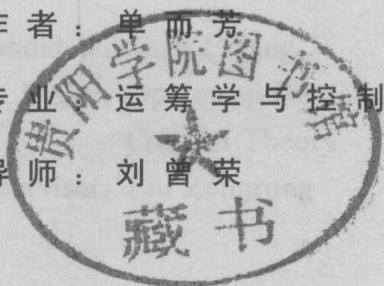 作者：单而芳
专业：运筹学与控制
导师：刘曾荣
贵阳学院图书馆
藏书
Theory